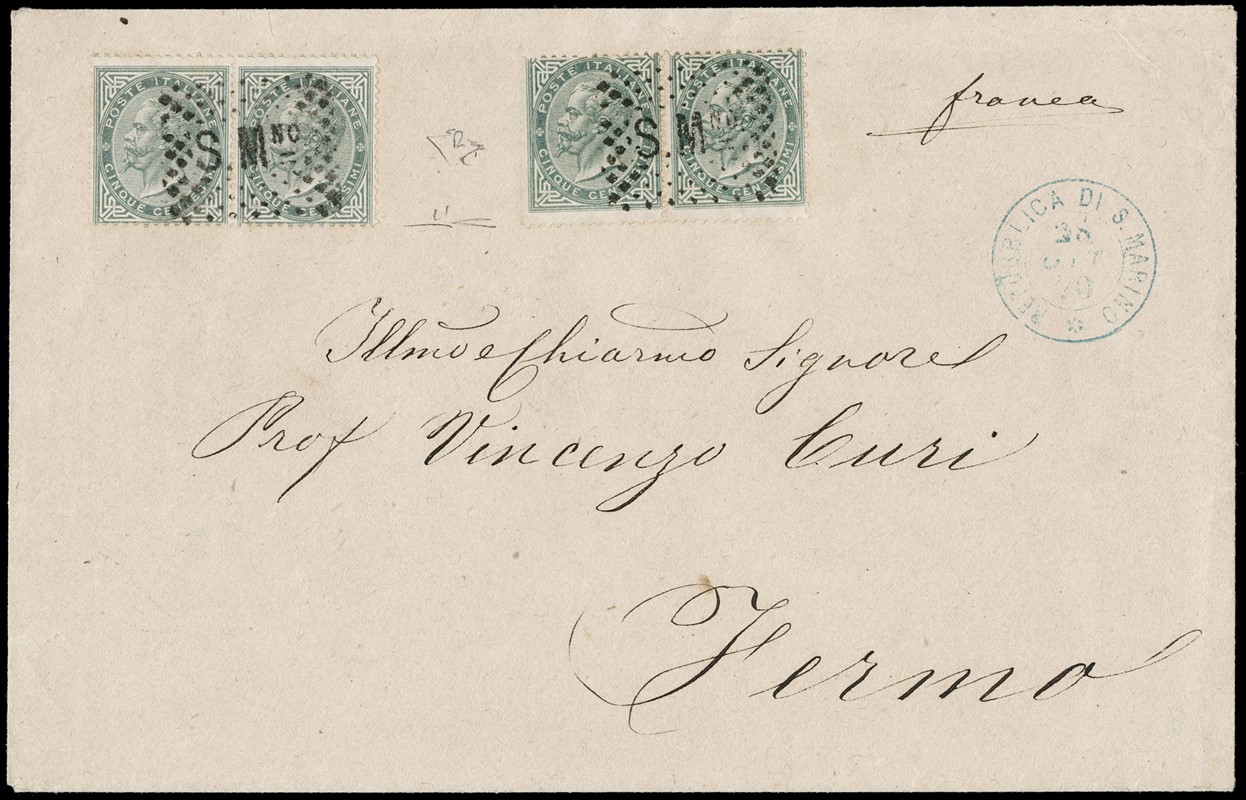 POSTE ITALIANE
CINQUE CENTESIMI
POSTE ITALIANE
CINQUE CENTESIMI
S. Mno
POSTE ITALIANE
CINQUE CENTESIMI
POSTE ITALIANE
CINQUE CENTESIMI
S. Mno
franca
REPUBBLICA DI S. MARINO
70
Illmo e Chiarmo Signore
Prof Vincenzo Curi
Fermo